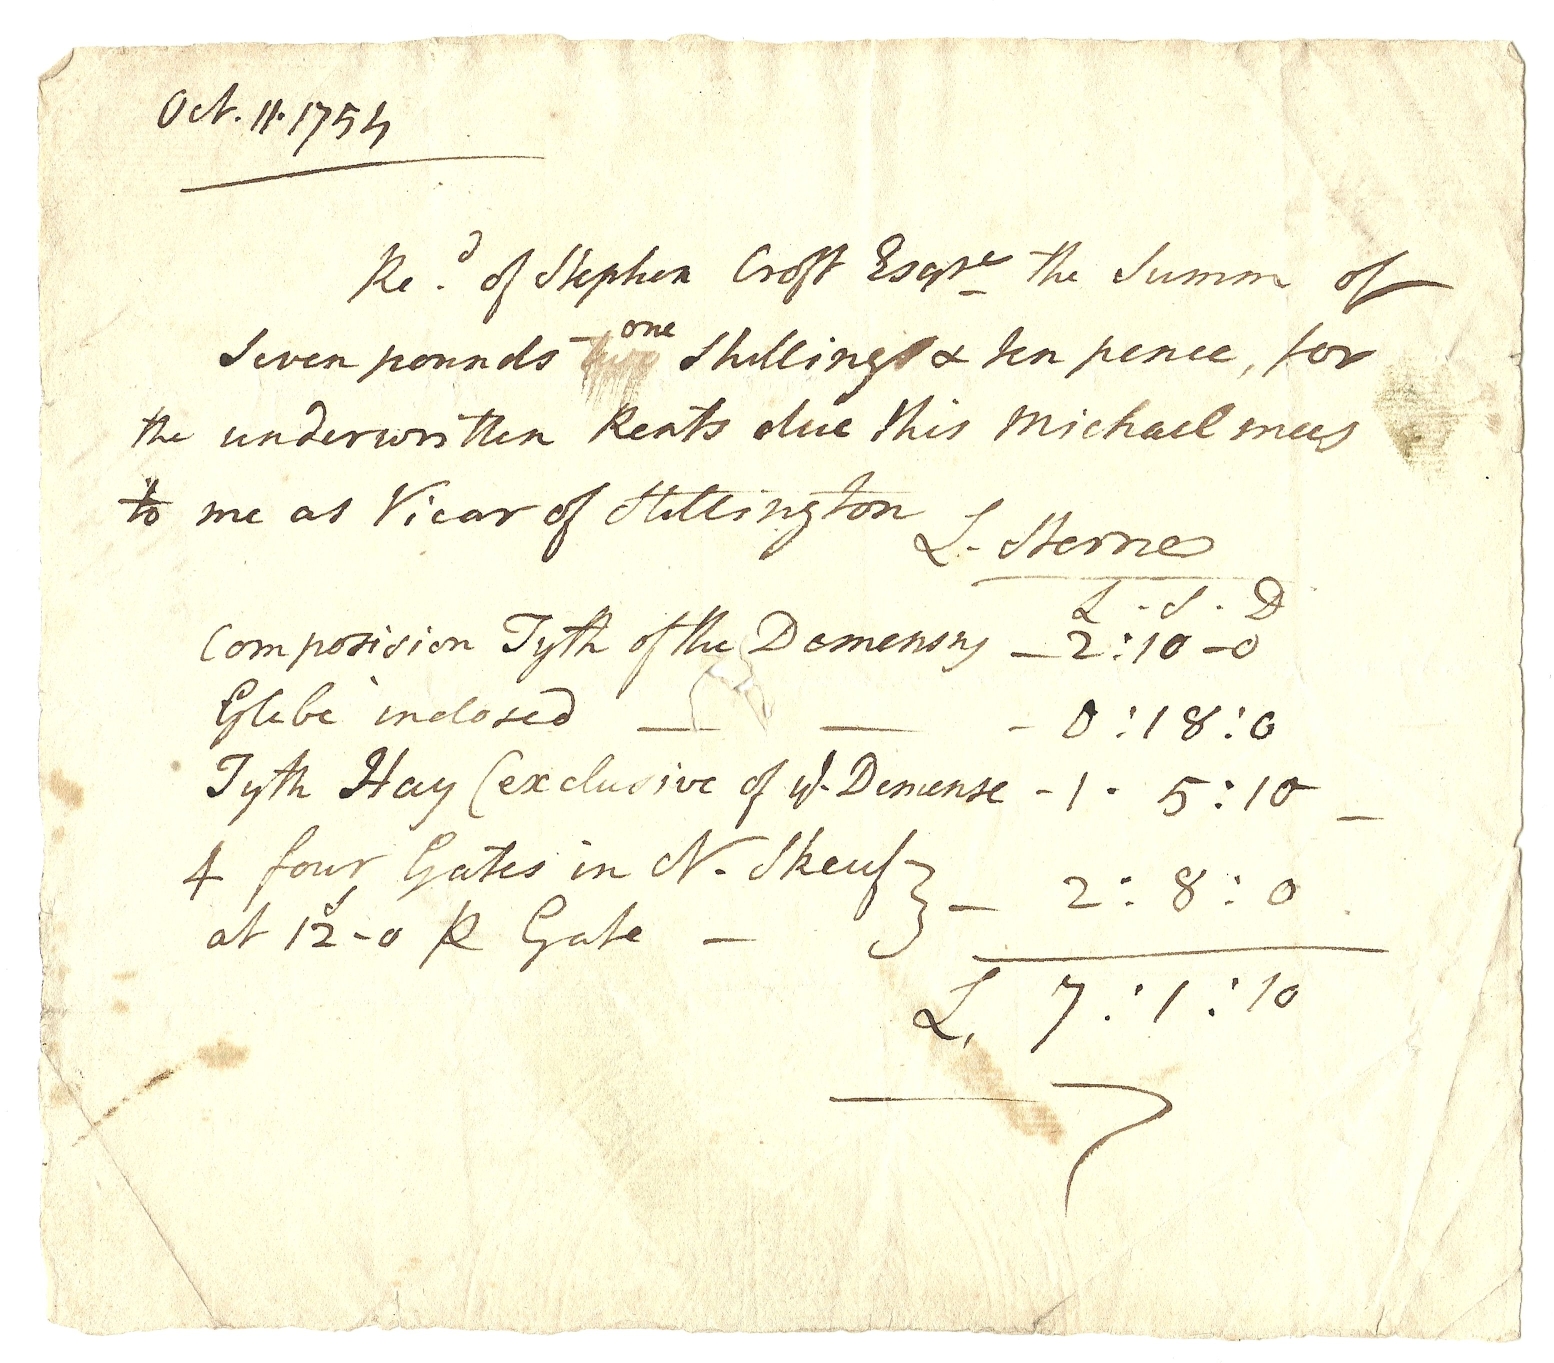 Oct. 11. 1754
Re.d of Stephen Croft Esqre the Summ of
Seven pounds one Shilling & ten pence, for
the underwritten Rents due this Michaelmas
to me as Vicar of Stillington
L. Sterne
L - S - D
Composision Tyth of the Demensns — 2 : 10 - 0
Glebe inclosed — — - 0 : 18 : 0
Tyth Hay (exclusive of ye Demense - 1 - 5 : 10 —
4 four Gates in N. Skeuf } — 2 : 8 : 0
at 12s-0 Gate —
L. 7 : 1 : 10